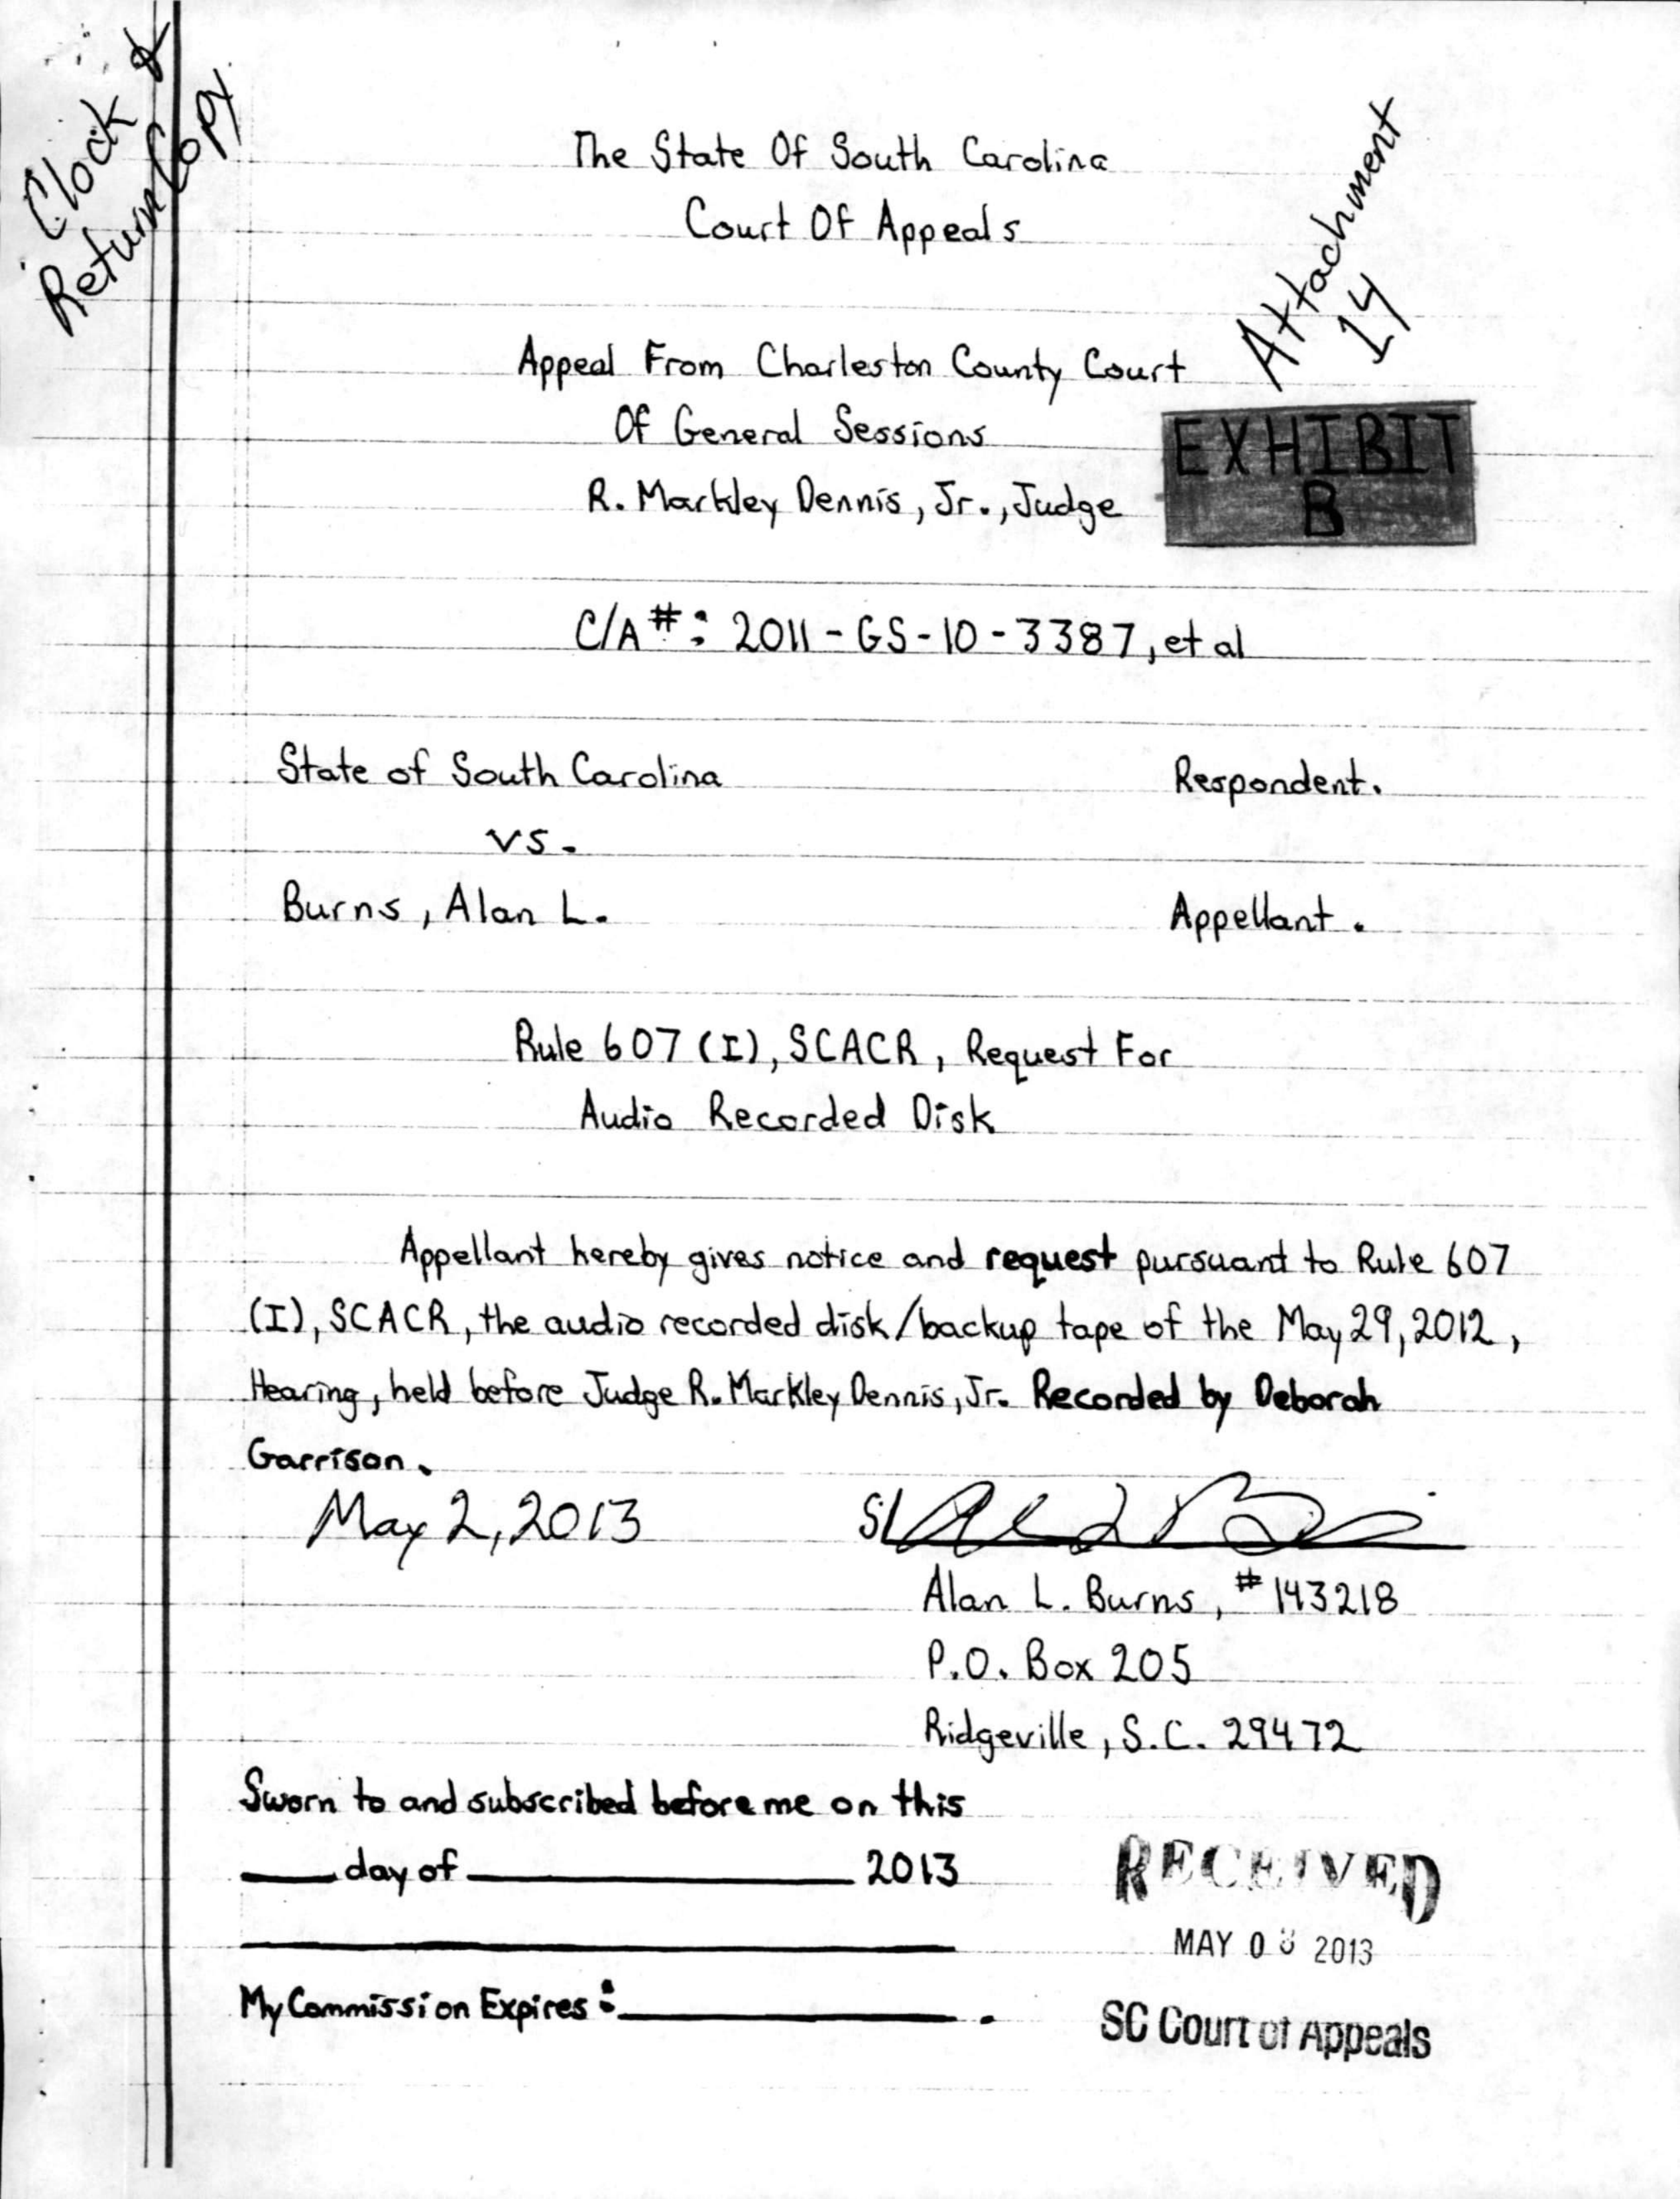 Clock &
Return Copy
The State Of South Carolina
Court Of Appeals
Attachment
14
Appeal From Charleston County Court
Of General Sessions
R. Markley Dennis, Jr., Judge
EXHIBIT
B
C/A #: 2011-GS-10-3387, et al
State of South Carolina Respondent.
vs.
Burns, Alan L. Appellant.
Rule 607 (I), SCACR, Request For
Audio Recorded Disk
Appellant hereby gives notice and request pursuant to Rule 607
(I), SCACR, the audio recorded disk/backup tape of the May 29, 2012,
Hearing, held before Judge R. Markley Dennis, Jr. Recorded by Deborah
Garrison.
May 2, 2013 S/
Alan L. Burns, #143218
P.O. Box 205
Ridgeville, S.C. 29472
Sworn to and subscribed before me on this
____ day of ____________ 2013
RECEIVED
MAY 2013
My Commission Expires: ____________.
SC Court of Appeals